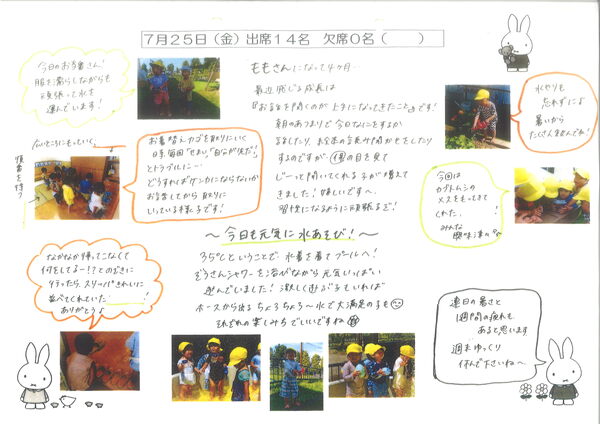 7月25日（金）出席14名 欠席0名（　　）
今日のお当番さん！
服を濡らしながらも
頑張って水を
運んでいます！
ももさんになって4ヶ月…
最近感じる成長は
『お話を聞くのが上手になってきたこと』です！
朝のあつまりで今日なにをするか
お話したり、お休みの
するのですが、目を見て
じーっと聞いてくれる子が増えて
きました！嬉しいです〜
習慣になるように頑張るぞ！
水やりも
忘れずに♪
暑いから
たくさんのんでね！
広いところにもっていく。
順番を待つ
お着替えカゴを取りにいく
日々毎回「せまい」「自分が先だ！」
とトラブルに…
どうすればケンカにならないか
お話してから取りに
いっている様子です！
今回は
カブトムシの
メスをもってきて
くれた
みんな
興味津々♪
〜今日も元気に水あそび！〜
35℃ということで、水着を着てプールへ！
ぞうさんシャワーを浴びながら元気いっぱい
遊んでました！激しく遊ぶ子もいれば
ホースから出るちょろちょろ〜水で大満足の子も
それぞれの楽しみちでいいですね
なかなか帰ってこなくて
何をしてるー！？とのぞきに
行ったら、スリッパきれいに
並べてくれていた！
ありがとう♪
連日の暑さと
1週間の疲れも
あると思います
週末ゆっくり
休んで下さいね〜